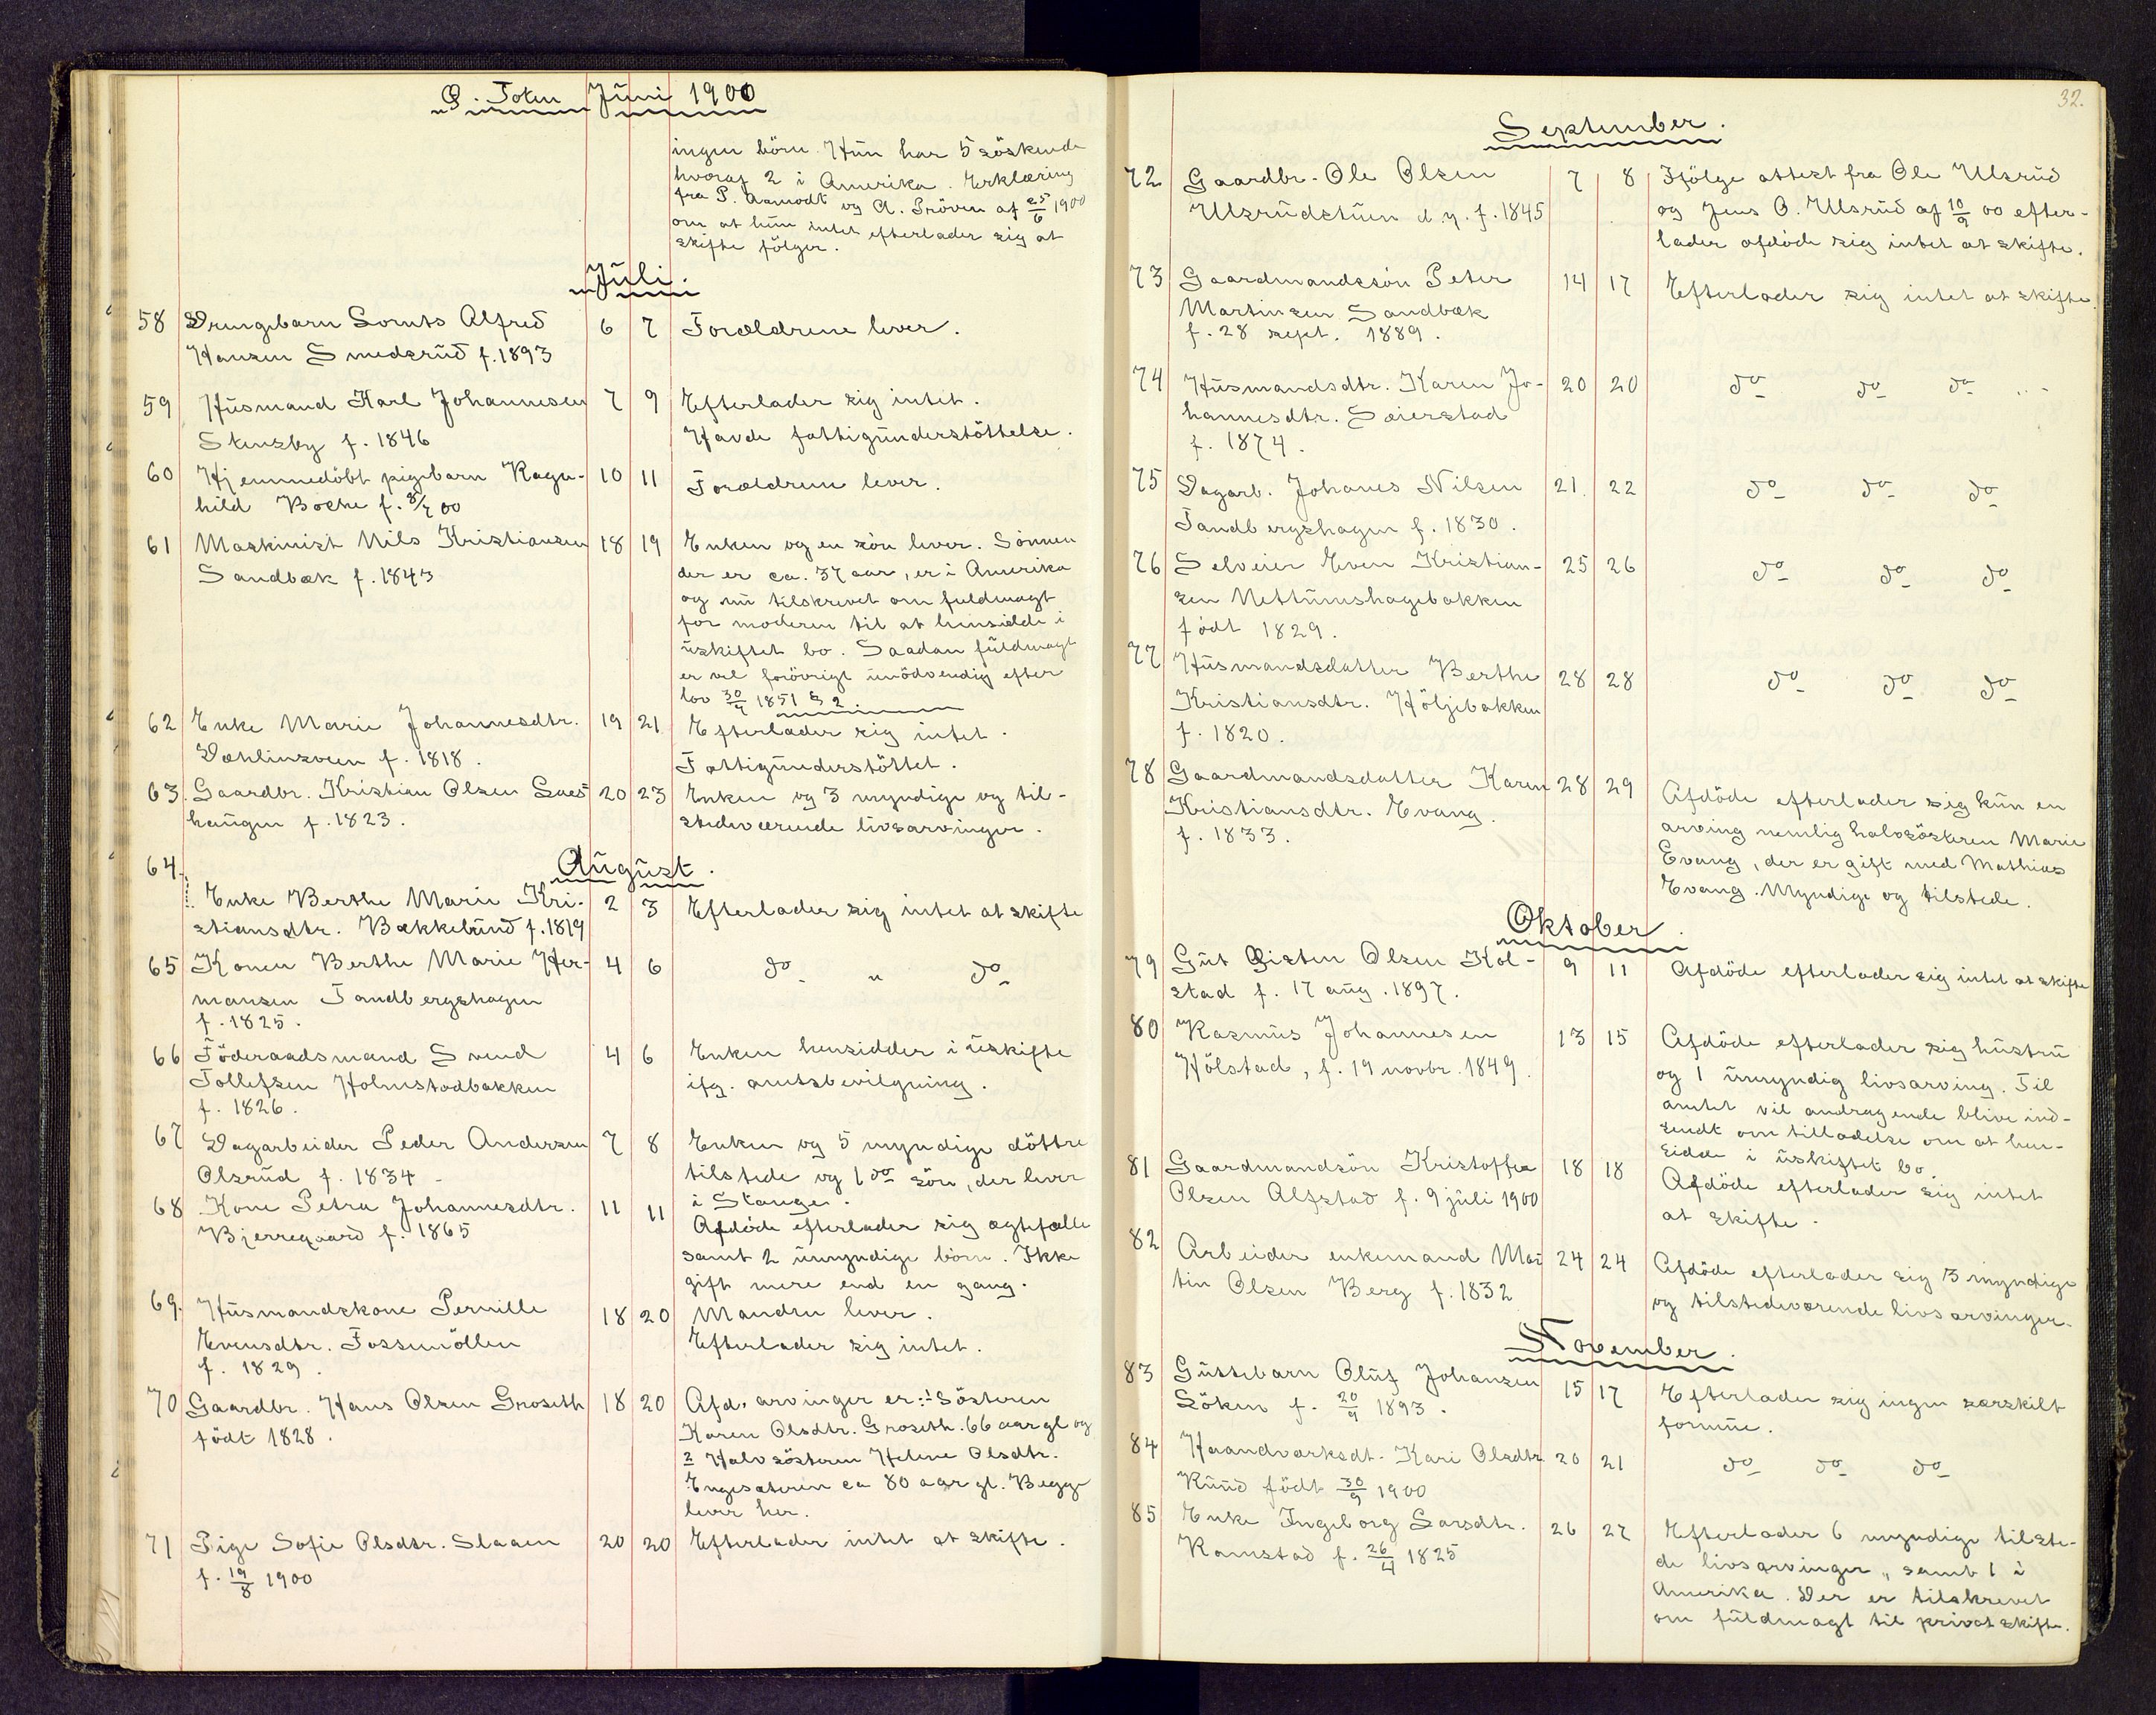 Ø. Toten Juni 1900
ingen börn. Hun har 5 söskende
hvoraf 2 i Amerika. Erklæring
fra P. Aamodt og A. Pröven af 25/6 1900
om at hun intet efterlader sig at
skifte fölger.
Juli.
58 Drengebarn Lorents Alfred 6 7 Forældrene lever.
Hansen Smedsrud f. 1893
59 Husmand Karl Johannesen 7 9 Efterlader sig intet.
Stensby f. 1846 Havde fattigunderstöttelse.
60 Hjemmedöbt pigebarn Ragn- 10 11 Forældrene lever.
hild Boche f. 8/7 00
61 Maskinist Nils Kristiansen 18 19 Enken og en sön lever. Sönnen
Sandbæk f. 1843 der er ca. 37 aar, er i Amerika
og nu tilskrevet om fuldmagt
for moderen til at hensidde i
uskiftet bo. Saadan fuldmagt
er vel forövrigt unödvendig efter
lov 30/7 1851 § 2.
62 Enke Marie Johannesdtr. 19 21 Efterlader sig intet.
Dæhlinsveen f. 1818. Fattigunderstöttet.
63. Gaardbr. Kristian Olsen Laes- 20 23 Enken og 3 myndige og til-
haugen f. 1823. stedeværende livsarvinger.
August.
64. Enke Berthe Marie Kri- 2 3 Efterlader sig intet at skifte
stiansdtr. Bækkelund f. 1819
65 Konen Berthe Marie Her- 4 6 do " do
mansen Sandbergshagen
f. 1825.
66 Föderaadsmand Svend 4 6 Enken hensidder i uskifte
Tollefsen Holmstadbakken ifg. amtsbevilgning.
f. 1826.
67 Dagarbeider Peder Andersen 7 8 Enken og 5 myndige döttre
Olsrud f. 1834 tilstede og 1 do sön, der lever
i Stange.
68 Kone Petra Johannesdtr. 11 11 Afdöde efterlader sig ægtefælle
Bjerregaard f. 1865 samt 2 umyndige börn. Ikke
gift mere end en gang.
69. Husmandskone Pernille 18 20 Manden lever.
Evensdtr. Fossemöllen Efterlader sig intet.
f. 1829.
70 Gaardbr. Hans Olsen Groseth 18 20 Afd. arvinger er: 1 Sösteren
födt 1828. Karen Olsdtr. Groseth. 66 aar gl og
2 Halvsösteren Helene Olsdtr.
Engesæteren ca 80 aar gl. Begge
lever her.
71 Pige Sofie Olsdtr. Slaaen 20 20 Efterlader intet at skifte.
f. 19/8 1900
32.
September.
72 Gaardbr. Ole Olsen 7 8 Ifölge attest fra Ole Ulsrud
Ulsrudstuen d.y. f. 1845 og Jens O. Ulsrud af 10/9 00 efter-
lader afdöde sig intet at skifte.
73 Gaardmandssön Peter 14 17 Efterlader sig intet at skifte.
Martinsen Sandbæk
f. 28 sept. 1889.
74 Husmandsdtr. Karen Jo- 20 20 do do do
hannesdtr. Seierstad
f. 1874.
75 Dagarb. Johanes Nilsen 21 22 do do do
Sandbergshagen f. 1830.
76 Selveier Even Kristian- 25 26 do do do
sen Nettumshagebakken
födt 1829.
77 Husmandsdatter Berthe 28 28 do do do
Kristiansdtr. Höljebakken
f. 1820.
78 Gaardmandsdatter Karen 28 29 Afdöde efterlader sig kun en
Kristiansdtr. Evang. arving nemlig halvsösteren Marie
f. 1833. Evang, der er gift med Mathias
Evang. Myndige og tilstede.
Oktober.
79 Gut Gisten Olsen Kol- 9 11 Afdöde efterlader sig intet at skifte
stad f. 17 aug. 1897.
80 Rasmus Johannesen 13 15 Afdöde efterlader sig hustru
Hölstad, f. 19 novbr. 1849. og 1 umyndig livsarving. Til
amtet vil andragende blive ind-
sendt om tilladelse om at hen-
sidde i uskiftet bo.
81 Gaardmandsön Kristoffer 18 18 Afdöde efterlader sig intet
Olsen Alfstad f. 9 juli 1900 at skifte.
82 Arbeider enkemand Mar 24 24 Afdöde efterlader sig 3 myndige
tin Olsen Berg f. 1832 og tilstedeværende livsarvinger.
November.
83 Guttebarn Oluf Johansen 15 17 Efterlader sig ingen særskilt
Söken f. 20/9 1893. formue.
84 Haandværksdt. Kari Olsdtr. 20 21 do do do
Ruud födt 30/9 1900
85 Enke Ingeborg Larsdtr. 26 27 Efterlader 6 myndige tilste-
Ramstad f. 26/4 1825 de livsarvinger, samt 1 i
Amerika. Der er tilskrevet
om fuldmagt til privat skifte.